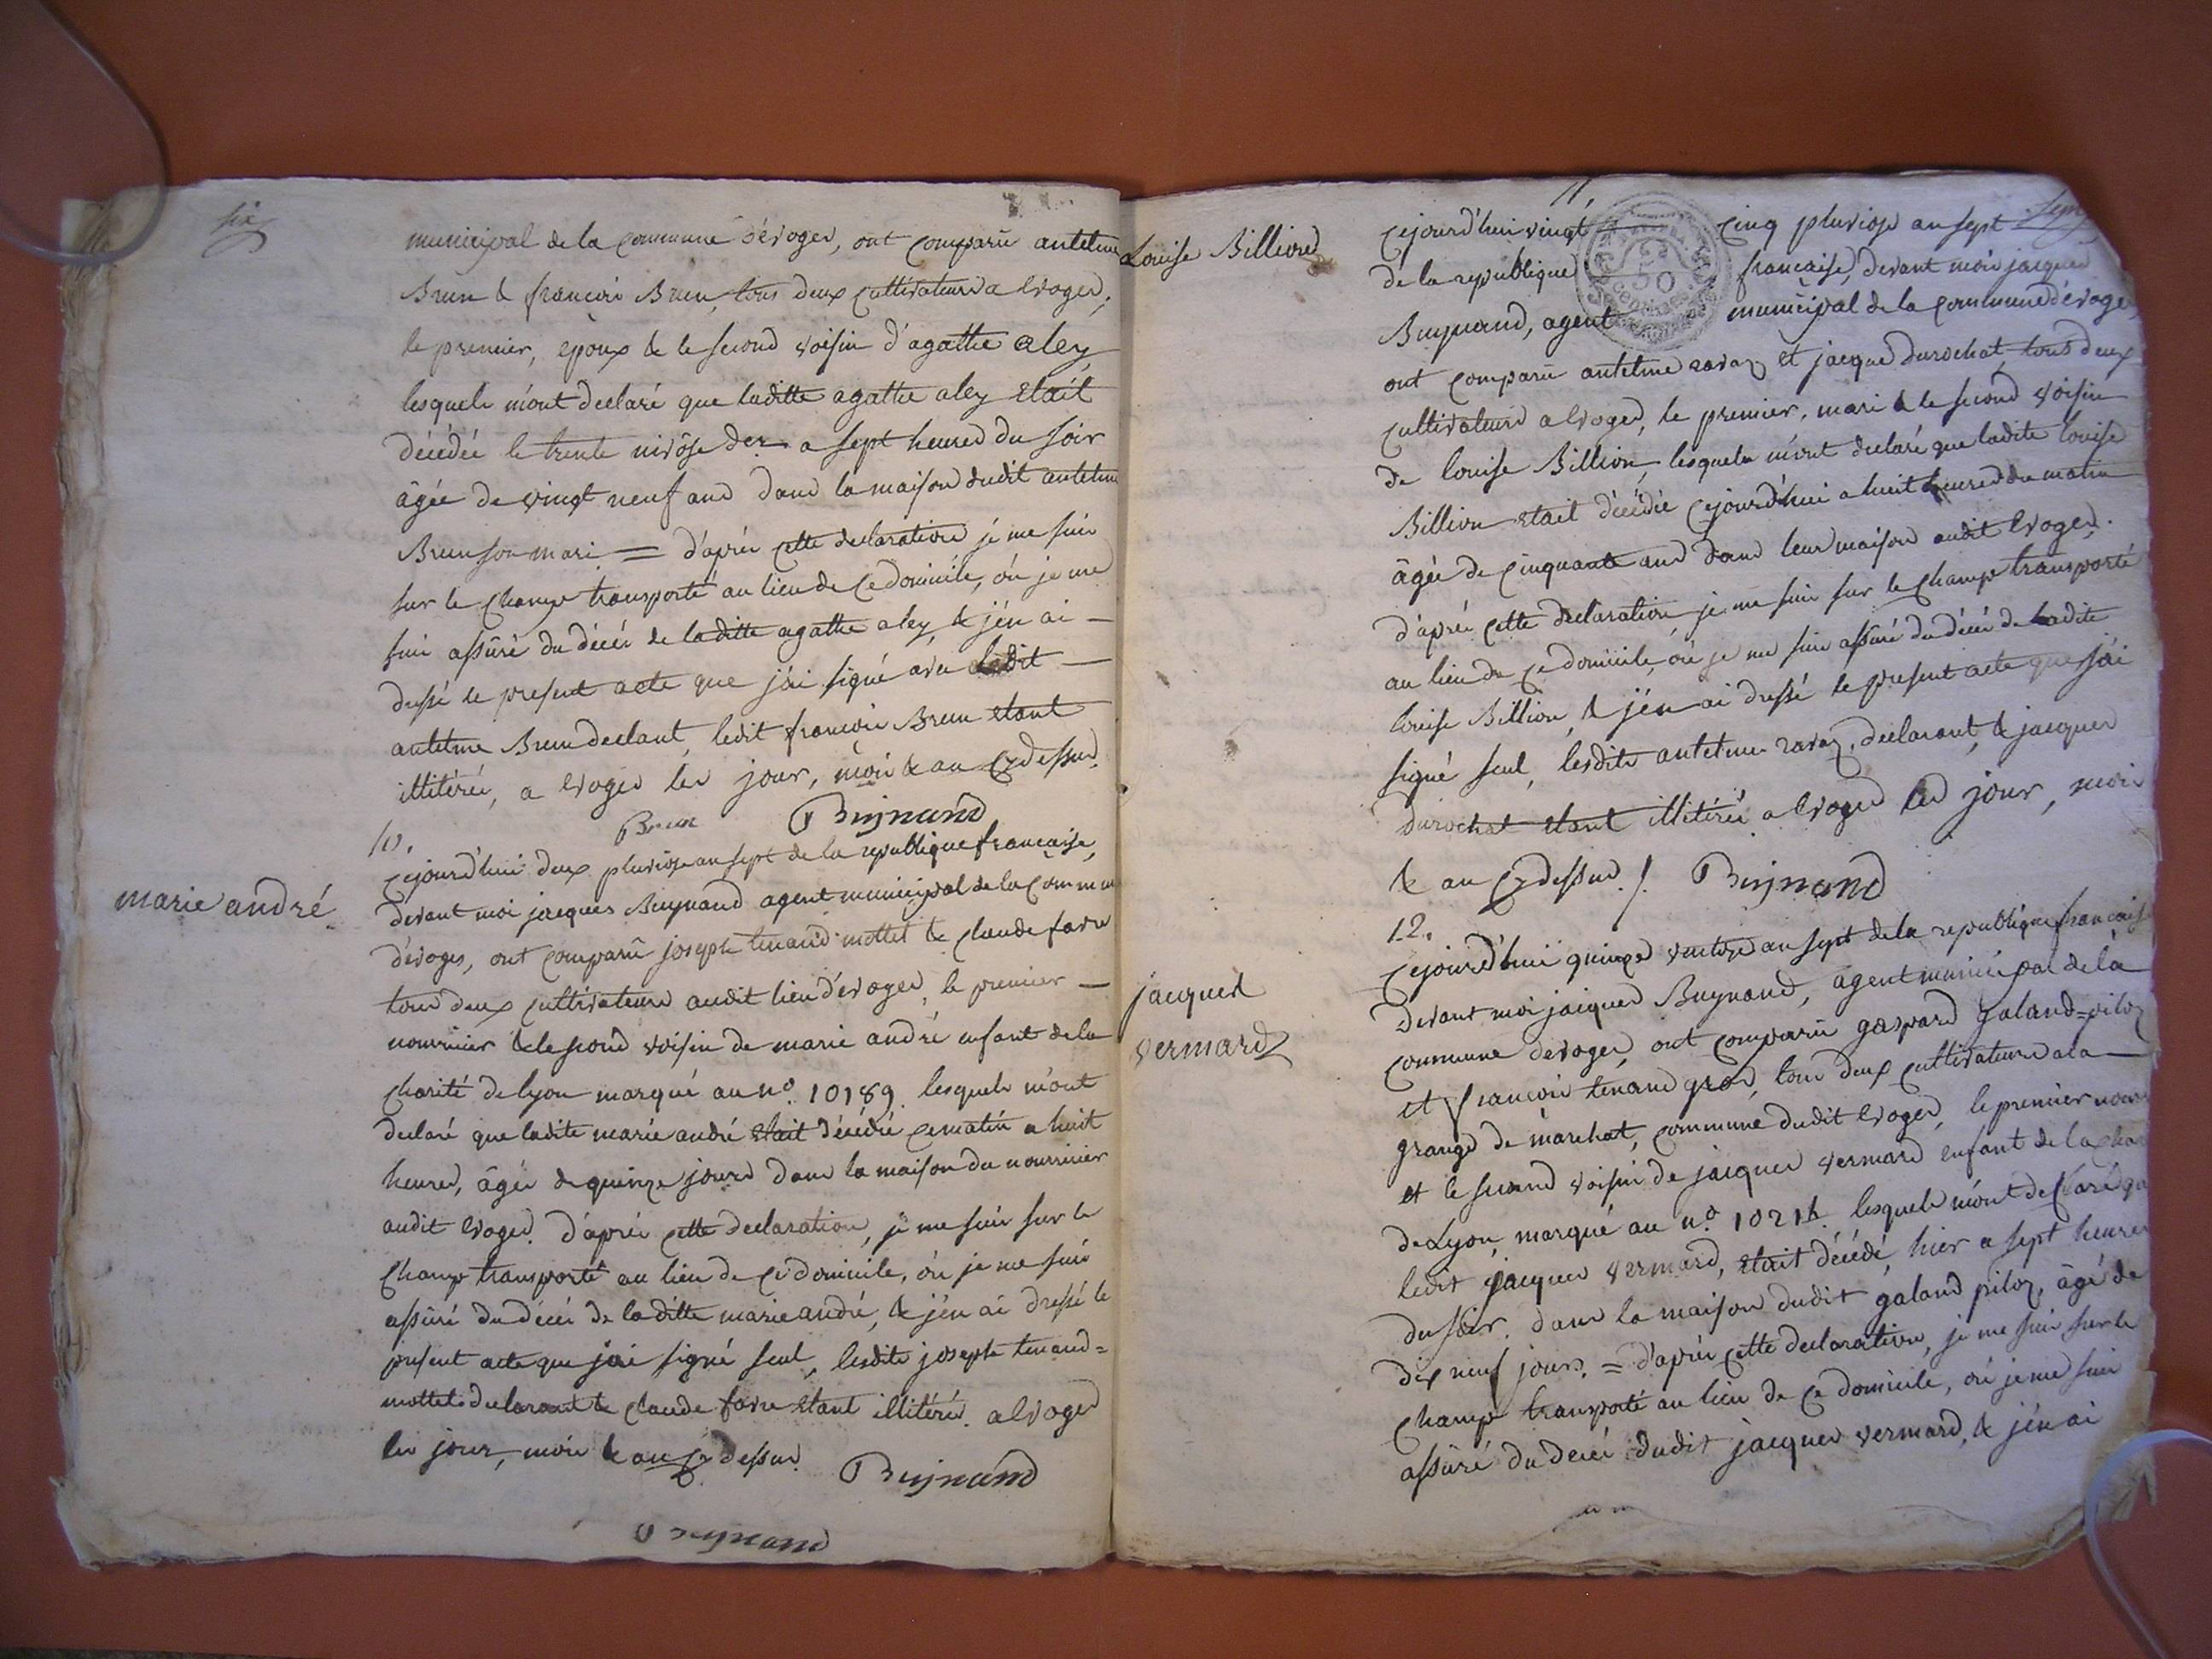 six
municipal de la commune d'evoges, ont comparu antelme
Brun & francois Brun, tous deux cultivateurs a evoges,
le premier, epoux & le second voisin d'agathe aley
lesquels m'ont declaré que laditte agathe aley était
décédée le trente nivôse der a sept heures du soir
âgée de vingt neuf ans dans la maison dudit antelme
Brun son mari = d'après cette declaration je me suis
sur le champ transporté au lieu de ce domicile, où je me
suis assûré du décès de laditte agathe aley, & j'en ai
dressé le present acte que j'ai signé avec ledit
antelme Brun declant, ledit francois Brun etant
illitéré, a evoges les jour, mois & an cy dessus.
Brun Buynand
10.
marie andré
cejourd'hui deux pluviose an sept de la republique francaise,
devant moi jacques Buynand agent municipal de la commun
d'evoges, ont comparu joseph tenand mottet & claude favre
tous deux cultivateurs audit lieu d'evoges, le premier
nourricier & le second voisin de marie andré enfant de la
charité de lyon marqué au n.º 10189. lesquels m'ont
declaré que ladite marie andré était décédée ce matin a huit
heures, âgée de quinze jours dans la maison du nourricier
audit evoges. d'après cette declaration, je me suis sur le
champ transporté au lieu de ce domicile, où je me suis
assûré du décès de laditte marie andré, & j'en ai dressé le
present acte que j'ai signé seul, lesdits joseph tenand=
mottet declarant & claude favre etant illitérés. a evoges
les jour, mois & an cy dessus. Buynand
Buynand
11.
Louise Billion
cejourd'hui vingt cinq pluviose an sept
sept
de la republique francaise, devant moi jacques
50
Buynand, agent municipal de la commune d'evoges,
ont comparu antelme ravaz et jacque durochat, tous deux
cultivateurs a evoges, le premier, mari & le second voisin
de louise Billion, lesquels m'ont declaré que ladite louise
Billion etait décédée cejourd'hui a huit heures du matin
âgée de cinquante ans dans leur maison audit evoges.
d'après cette declaration je me suis sur le champ transporté
au lieu de ce domicile, où je me suis assûré du décès de ladite
louise Billion, & j'en ai dressé le present acte que j'ai
signé seul, lesdits antelme ravaz, declarant, & jacques
durochat etant illitérés a evoges les jour, mois
& an cy dessus ./. Buynand
12.
jacques
vermard
cejourd'hui quinze ventose an sept de la republique francaise
devant moi jacques Buynand, agent municipal de la
commune d'evoges, ont comparu gaspard galand=piloz
et francois tenand gros, tous deux cultivateurs a la
grange de marchat, commune dudit evoges, le premier nourr
et le second voisin de jacques vermard enfant de la char
de Lyon, marqué au n.º 10214. lesquels m'ont declaré que
ledit jacques vermard, etait décédé, hier a sept heures
du soir. dans la maison dudit galand piloz, âgé de
dix neuf jours. = d'après cette declaration, je me suis sur le
champ transporté au lieu de ce domicile, où je me suis
assûré du decès dudit jacques vermard, & j'en ai